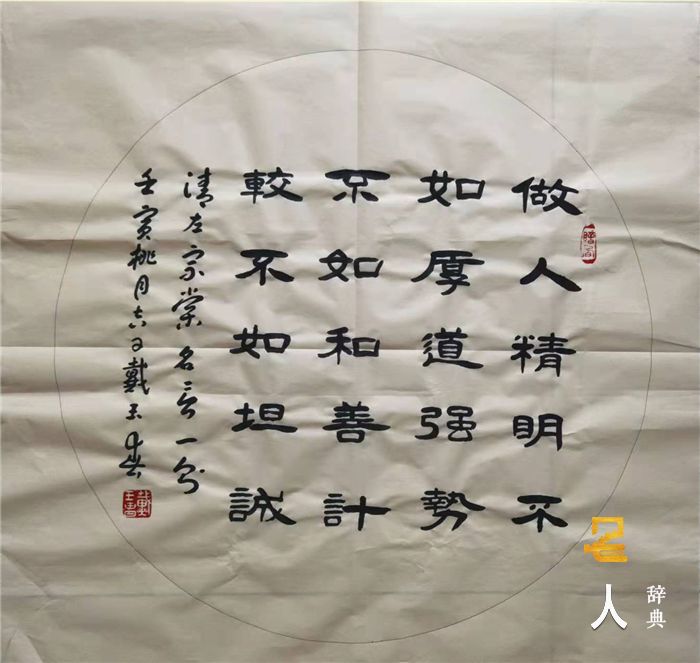 做人精明不
如厚道强勢
不如和善計
較不如坦誠
清左宗棠名言一則
壬寅桃月吉日戴玉春
名人
辞典